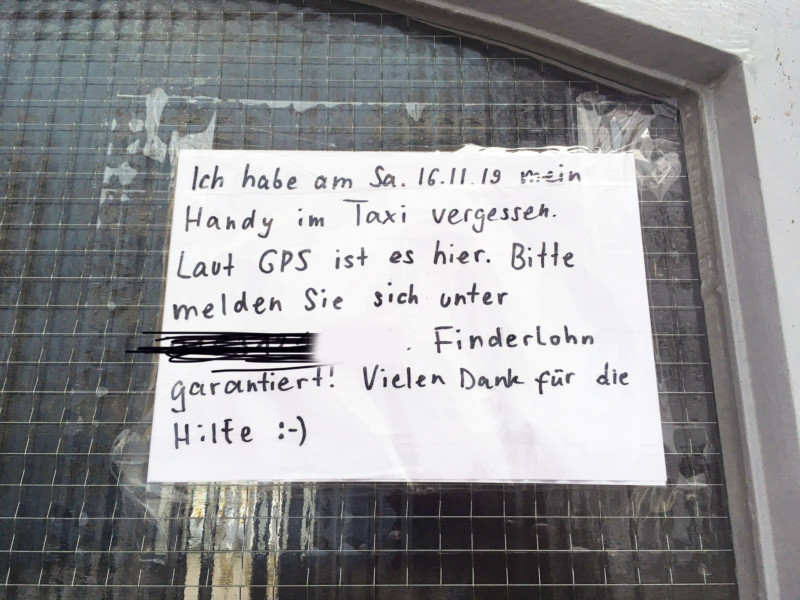 Ich habe am Sa. 16.11.19 mein
Handy im Taxi vergessen.
Laut GPS ist es hier. Bitte
melden Sie sich unter
. Finderlohn
garantiert! Vielen Dank für die
Hilfe :-)